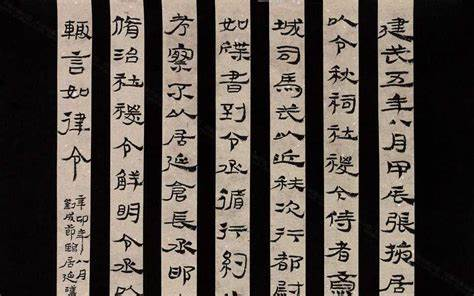 建武五年八月甲辰張掖居
以令秋祠社稷令侍者齋
城司馬武以近秩次行都尉
如牒書到令丞循行約
考察不以居延倉長丞邯
脩治社稷令鮮明令丞以
輒言如律令
辛卯年八月
節臨居延漢